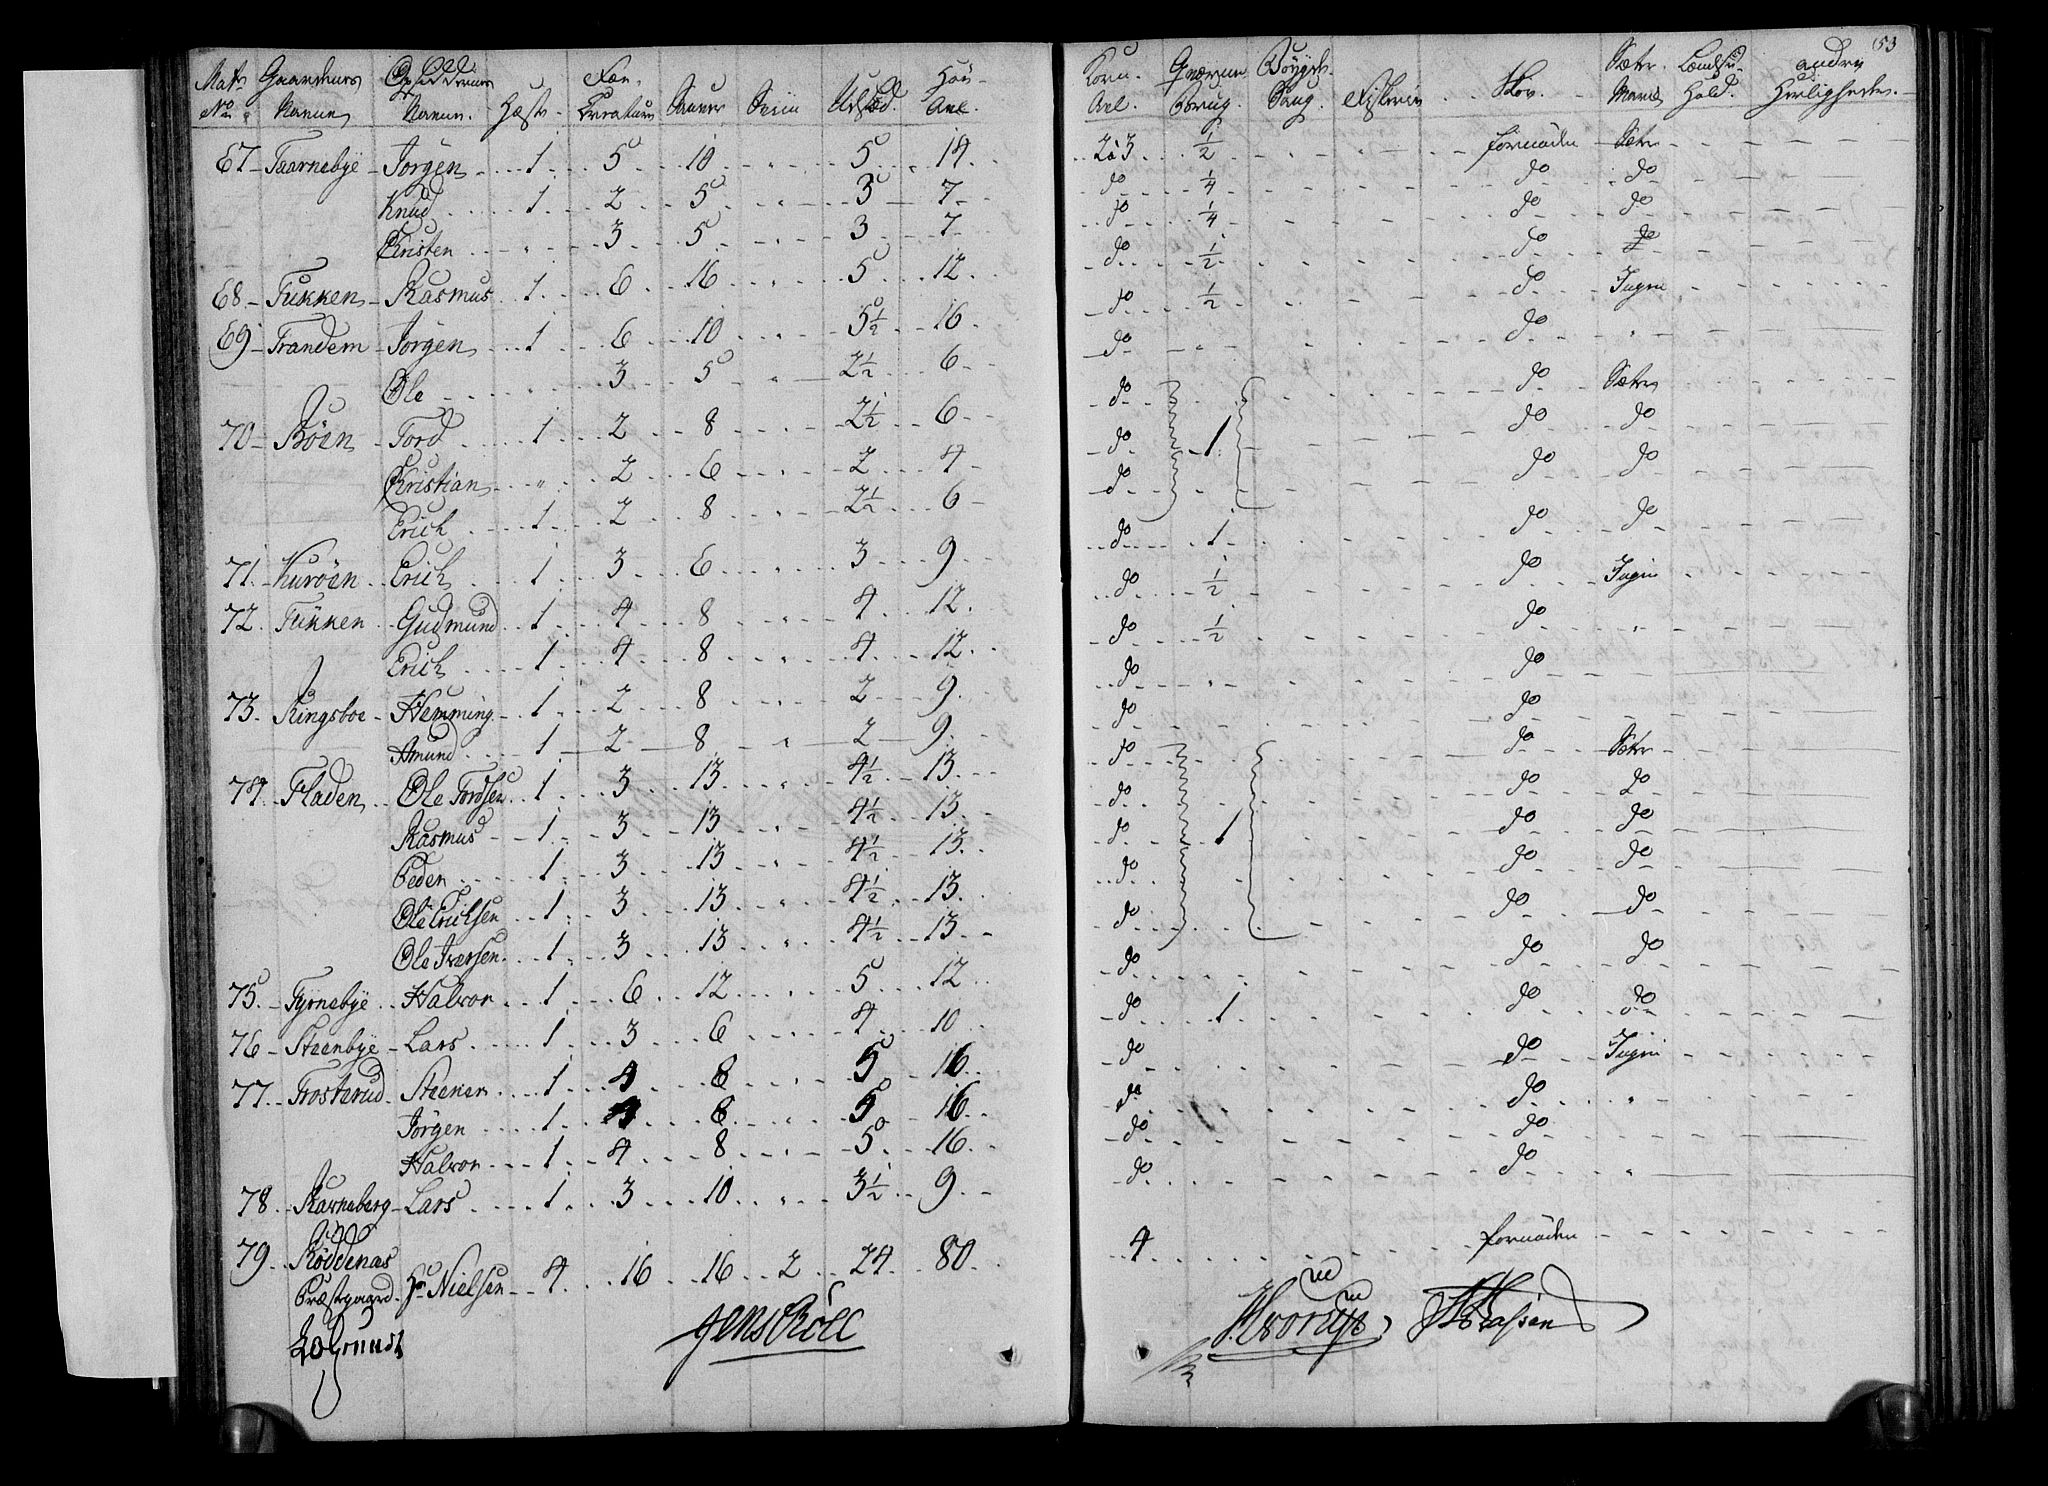 53
Matr No Gaardenes Navne Opsiddernes Navne Hæste Fæe Creature Sauer Sviin Udsæd Høy Avl Korn Avl Qværne Brug Bøygde Saug Fiskerie Skov Sæter Marck Lændsu Hold andre Herligheder
67 Taarnebye Jørgen 1 5 10 " 5 14 2 à 3 1/2 fornøden Sæter
Knud 1 2 5 " 3 7 do 1/4 do do
Christen " 3 5 " 3 7 do 1/4 do do
68 Tukken Rasmus 1 6 16 " 5 12 do 1/2 do do
69 Trandem Jørgen 1 6 10 " 5 1/2 16 do 1/2 do Ingen
Ole " 3 5 " 2 1/2 6 do " do "
70 Böen Tord 1 2 8 2 1/2 6 do do Sæter
Christian " 2 6 " 2 4 do 1 do do
Erich 1 2 8 " 2 1/2 6 do do do
71 Kuröen Erich 1 3 6 " 3 9 do 1 do do
72 Tükken Gudmund 1 4 8 " 4 12 do 1/2 do Ingen
Erich 1 4 8 " 4 12 do 1/2 do "
73 Ringsboe Hemming 1 2 8 2 9 do " do
Amund 1 2 8 " 2 9 do do
74 Fladen Ole Tordsen 1 3 13 " 4 1/2 13 do do Sæter
Rasmus 1 3 13 " 4 1/2 13 do do do
Peder 1 3 13 " 4 1/2 13 do 1 do do
Ole Erichsen 1 3 13 " 4 1/2 13 do do do
Ole Iversen 1 3 13 " 4 1/2 13 do do do
75 Tyrnebye Halvor 1 6 12 " 5 12 do do do
76 Steenbye Lars 1 3 6 " 4 10 do 1 do do
77 Trosterud Steener 1 4 8 " 5 16 do do Ingen
Jörgen 1 4 8 " 5 16 do do "
Halvor 1 4 8 " 5 16 do do
78 Kavneberg Lars 1 3 10 " 3 1/2 9 do do "
79 Röddenæs Præstegaard Hr Nielsen 4 16 16 2 24 80 4 fornøden
Jens Röll